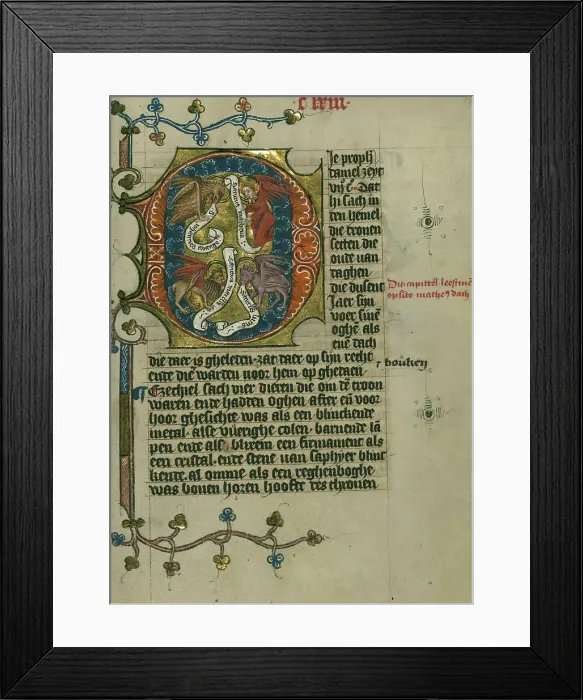 c lxiii·
Je proph̄
daniel zeyt
vij c̄· Dat
hi sach in
den hemel
die tronen
setten die
oude van
daghen
die dusent
Jaer sijn
voer sine
oghē als
enē dach
die daer is gheleden· zat daer op sijn recht
ende die warden voor hem op ghetaen
¶ Ezechiel sach vier dieren die om dē troon
waren ende hadden oghen after en voor
hoor ghesichte was als een blinckende
metal· alse vuerighe colen· barnende lā
pen ende als blixem een firmament als
een cristal· ende stene van saphyer blinc
kende· al omme als een reghenboghe
was bouen horen hoofde des thronen
Dit capittel leestmē
op sūte matheus dach
boucken